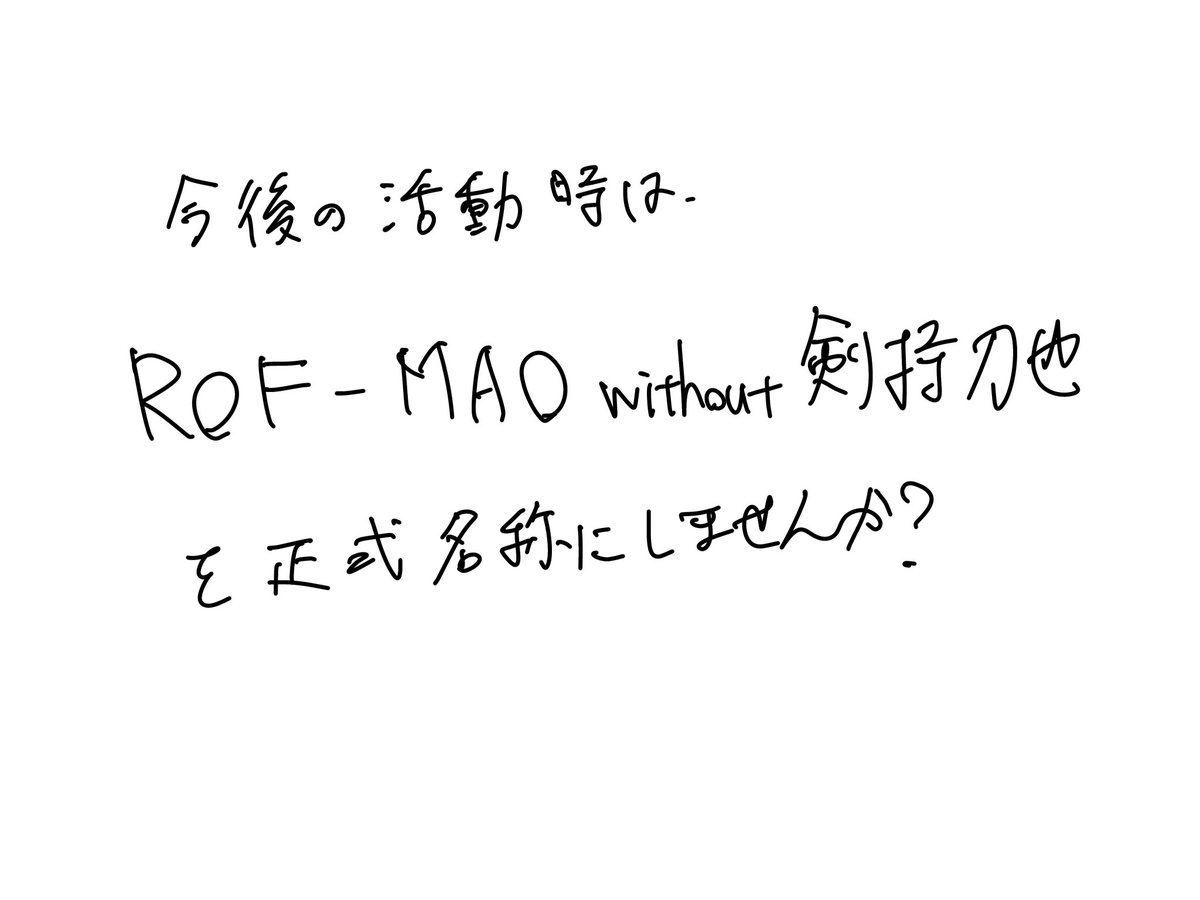 今後の活動時は、
ROF-MAO without 剣持刀也
を正式名称にしませんか？